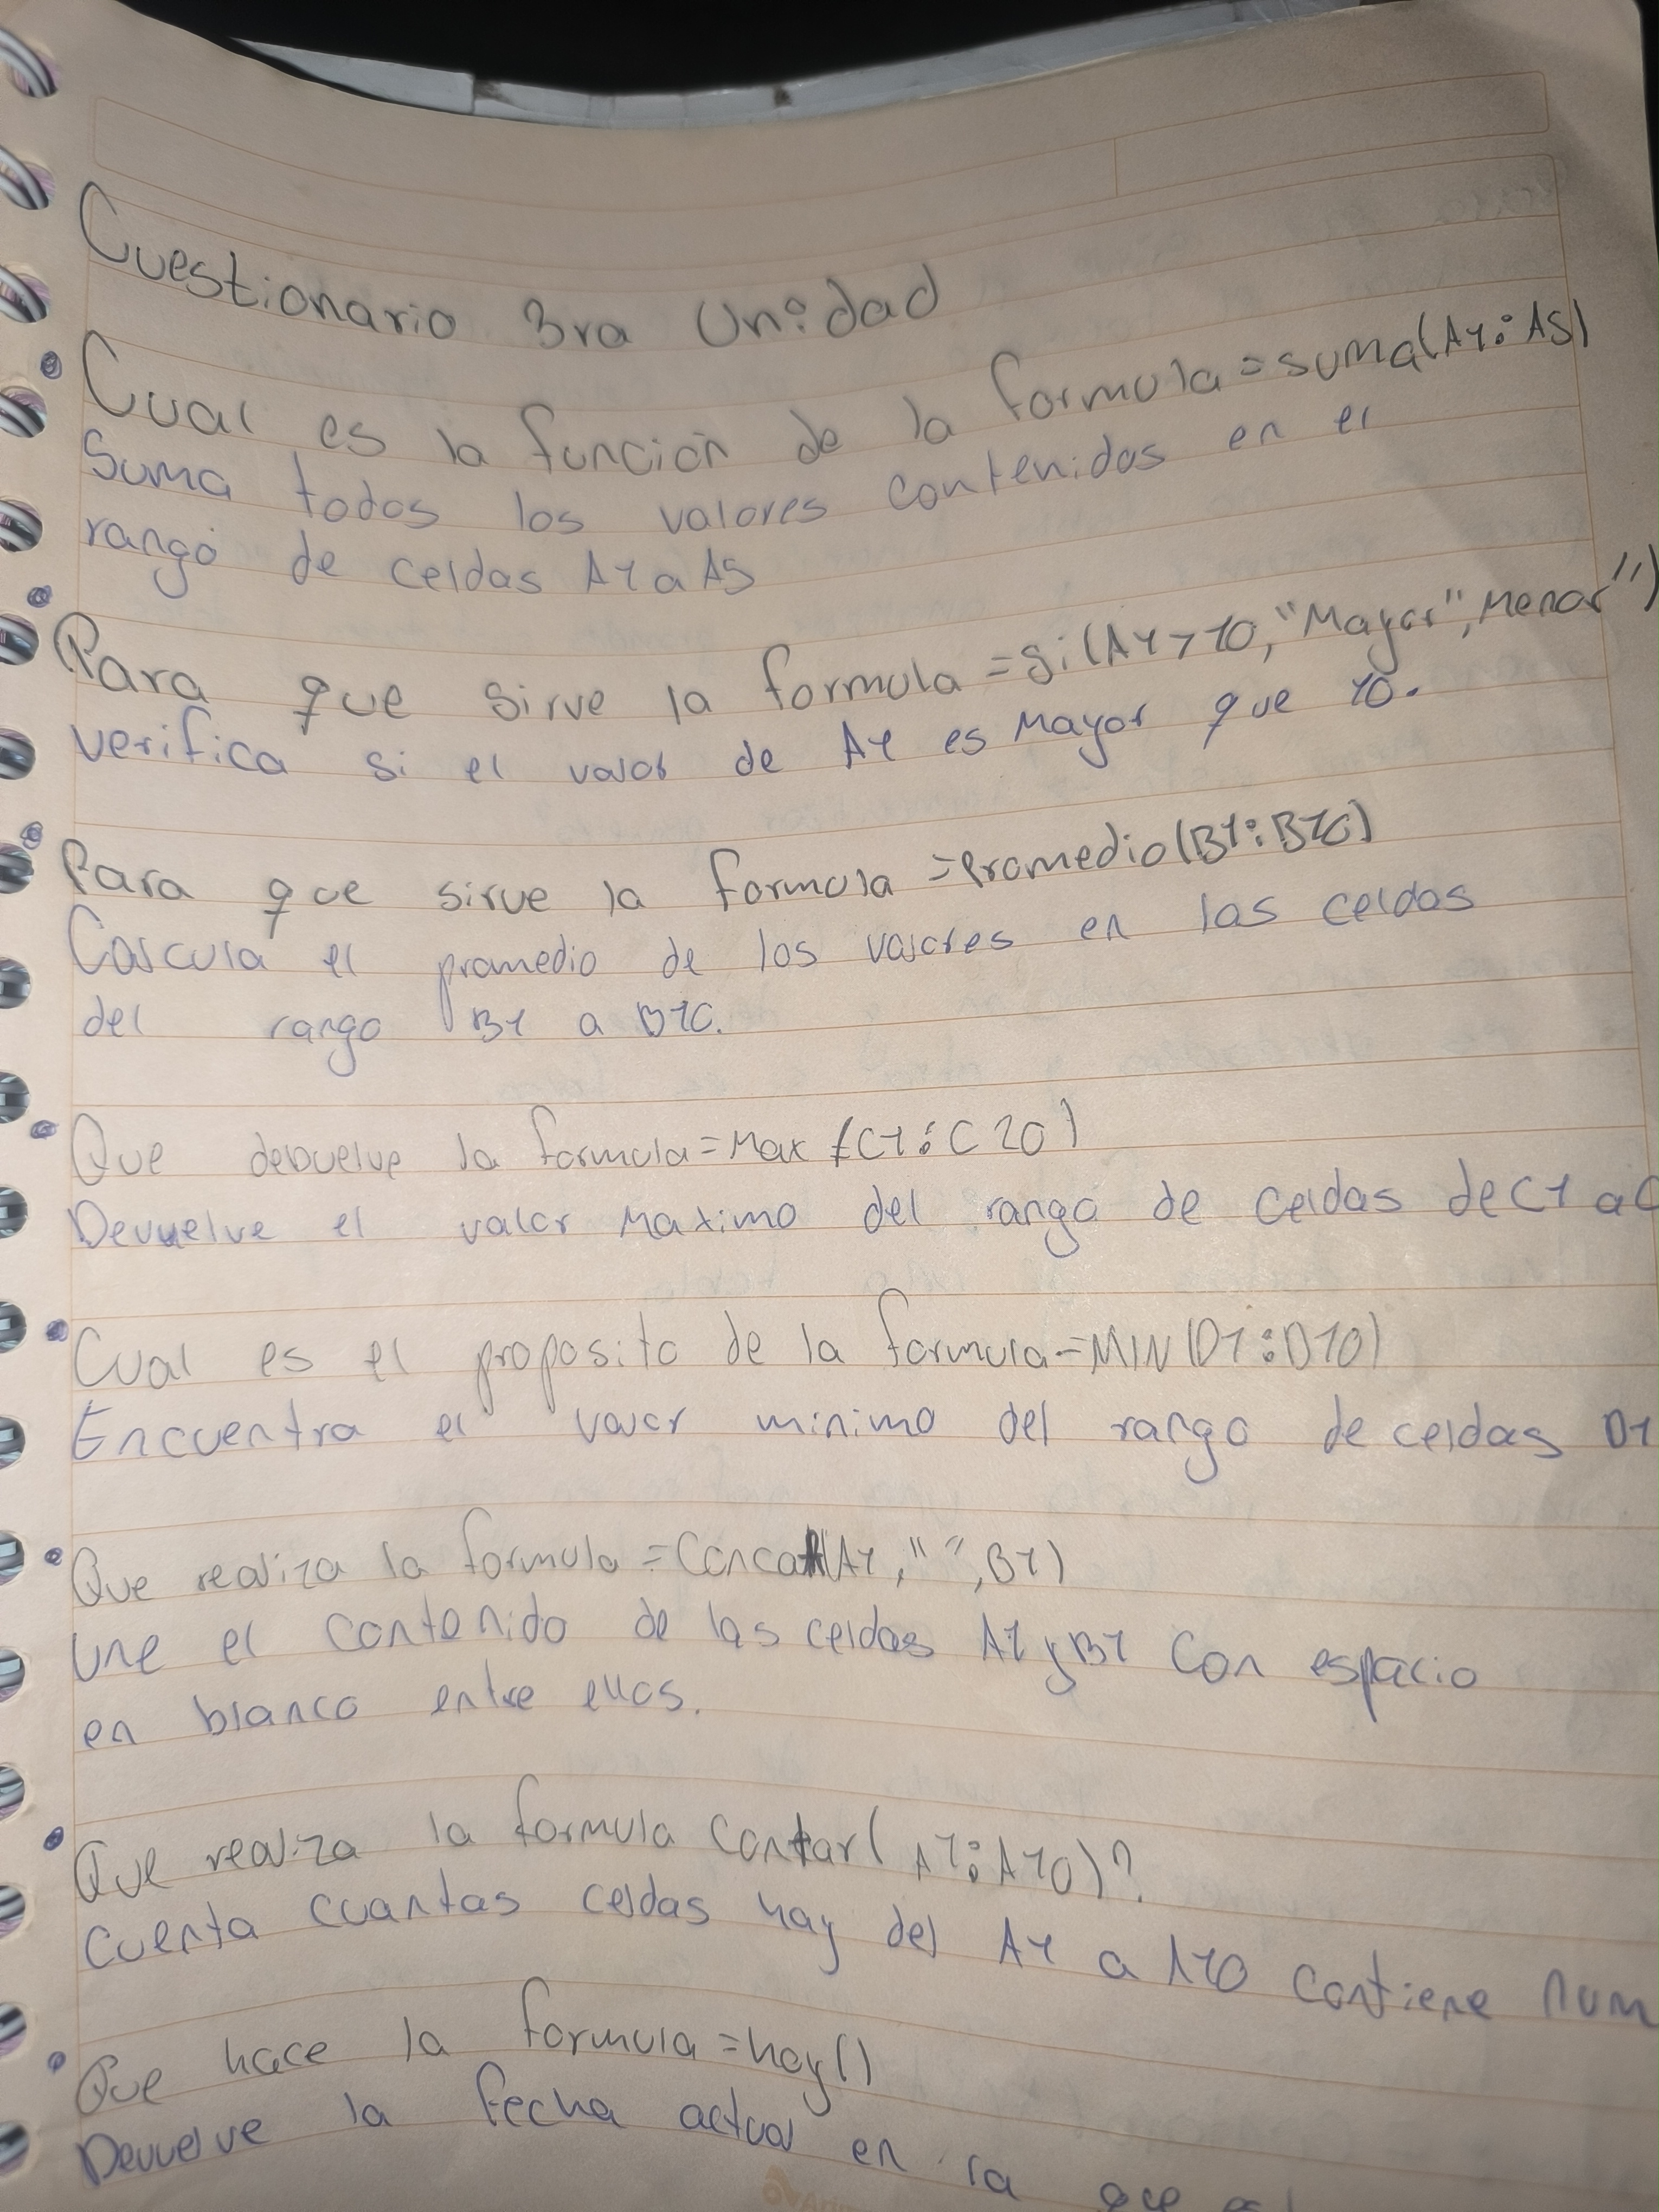 Cuestionario 3ra Unidad
Cual es la función de la formula=suma(A1:A5)
Suma todos los valores contenidos en el
rango de celdas A1 a A5
Para que sirve la formula =Si(A1>10,"Mayor",Menor")
verifica si el valor de A1 es Mayor que 10.
Para que sirve la formula =Promedio(B1:B10)
Calcula el promedio de los valores en las celdas
del rango B1 a B10.
Que debuelve la formula=Max (C1:C20)
Devuelve el valor Maximo del rango de celdas de C1 a C
Cual es el proposito de la formula=MIN(D1:D10)
Encuentra el valor minimo del rango de celdas D1
Que realiza la formula=Concat(A1," ",B1)
une el contenido de las celdas A1 y B1 Con espacio
en blanco entre ellos.
Que realiza la formula Contar(A1:A10)?
Cuenta cuantas celdas hay del A1 a A10 Contiene num
Que hace la formula=hoy()
Devuelve la fecha actual en la que